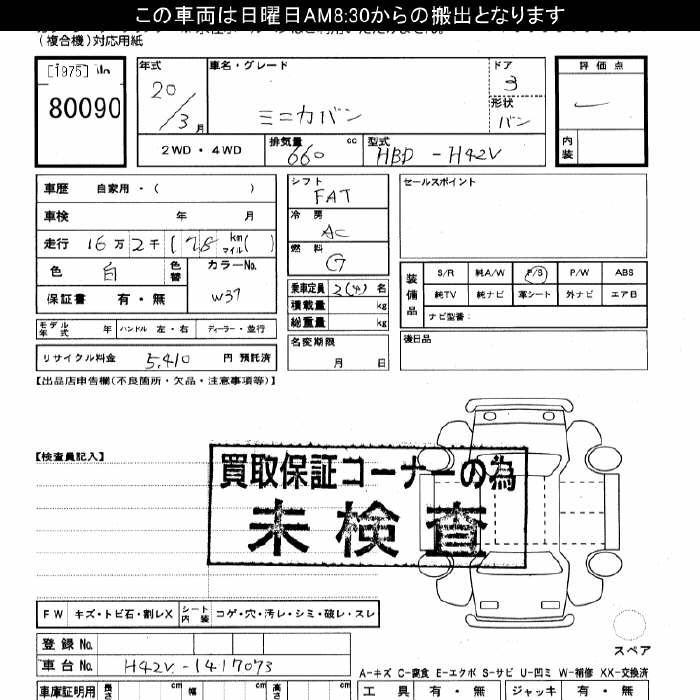 この車両は日曜日AM8:30からの搬出となります
(複合機)対応用紙
[1975]
80090
年式 20/3月
車名・グレード ミニカバン
ドア 3
形状 バン
評価点 —
内装
2WD・4WD
排気量 660 cc
型式 HBD-H42V
車歴 自家用・( )
車検 年 月
走行 16万2千178km マイル( )
色 白 色替 カラーNo. W37
保証書 有・無
モデル年式 年 ハンドル 左・右 ディーラー・並行
リサイクル料金 5,410 円 預託済
シフト FAT
冷房 AC
燃料 G
乗車定員 2(4)名
積載量 kg
総重量 kg
名変期限 月 日
セールスポイント
装備品
S/R 純A/W P/S P/W ABS
純TV 純ナビ 革シート 外ナビ エアB
ナビ型番:
後日品
【出品店申告欄(不良箇所・欠品・注意事項等)】
【検査員記入】
買取保証コーナーの為
未検査
FW キズ・トビ石・割レX シート内装 コゲ・穴・汚レ・シミ・破レ・スレ
スペア
登録No.
車台No. H42V-1417073
A-キズ C-腐食 E-エクボ S-サビ U-凹ミ W-補修 XX-交換済
車庫証明用 長さ cm 幅 cm 高さ cm
工具 有・無 ジャッキ 有・無